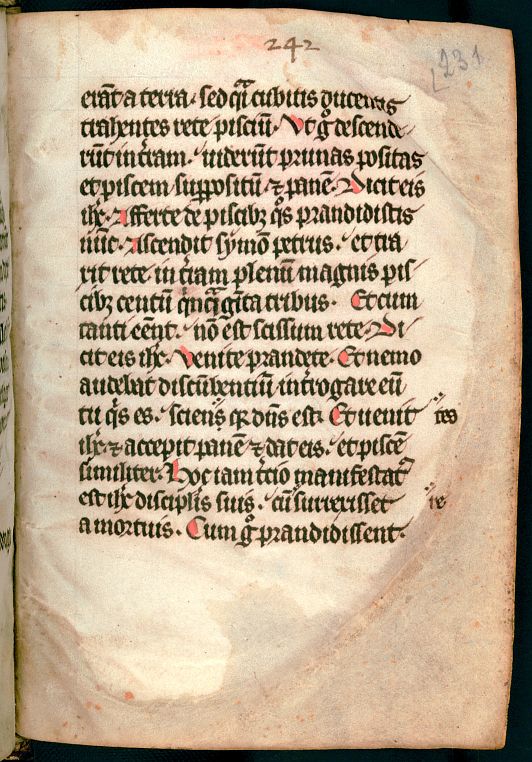 242
231
erāt a terra. sed q̄i cubitis ducentis
trahentes rete pisciū. Vt g̊ descende
rūt in t̄ram. uiderūt prunas positas
et piscem suppositū ⁊ panē. Dicit eis
ihc̄. Afferte de piscibꝫ q̊s prandidistis
nūc. Ascendit symon petrus. et tra
xit rete in t̄ram plenū magnis pis
cibꝫ centū q̄nq̄gīta tribus. Et cum
tanti eēnt. nō est scissum rete. Di
cit eis ihc̄. Venite prandete. Et nemo
audebat discūbentiū int̄rogare eū
tu q̄s es. scienſ ꝙ dn̄s est. Et uenit
teo
ihc̄. ⁊ accepit panē ⁊ dat eis. et piscē
similiter. Hoc iam t̄cio manifestat᷒
est ihc̄ discipl̄is suis. cū surrexisset
ie
a mortuis. Cum g̊ prandidissent.